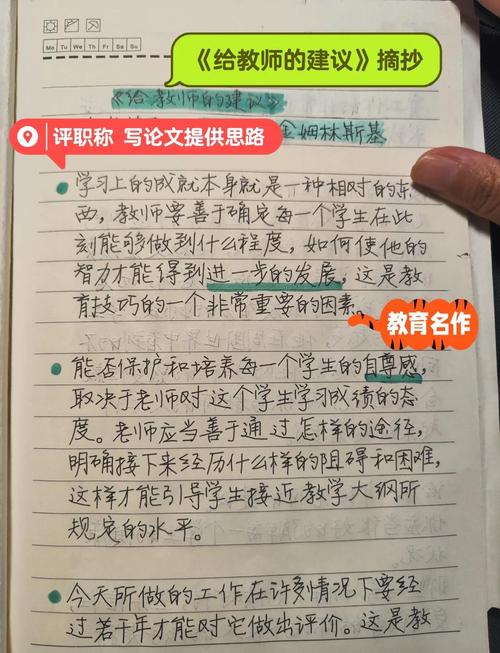 Mo Tu We Th Fr Sa Su
《给教师的建议》摘抄
《给教师的建议》
评职称 写论文提供思路
金姆林斯基
学习上的成就本身就是一种相对的东
西,教师要善于确定每一个学生在此
刻能够做到什么程度,如何使他的
智力才能得到进一步的发展,这是教
育技巧的一个非常重要的因素。
教育名作
能否保护和培养每一个学生的自尊感,
取决于老师对这个学生学习成绩的态
度。老师应当善于通过怎样的途径,
明确接下来经历什么样的阻碍和困难,
这样才能引导学生接近教学大纲所
规定的水平。
今天所做的工作在许多情况下要经
过若干年才能对它做出评价。这是教